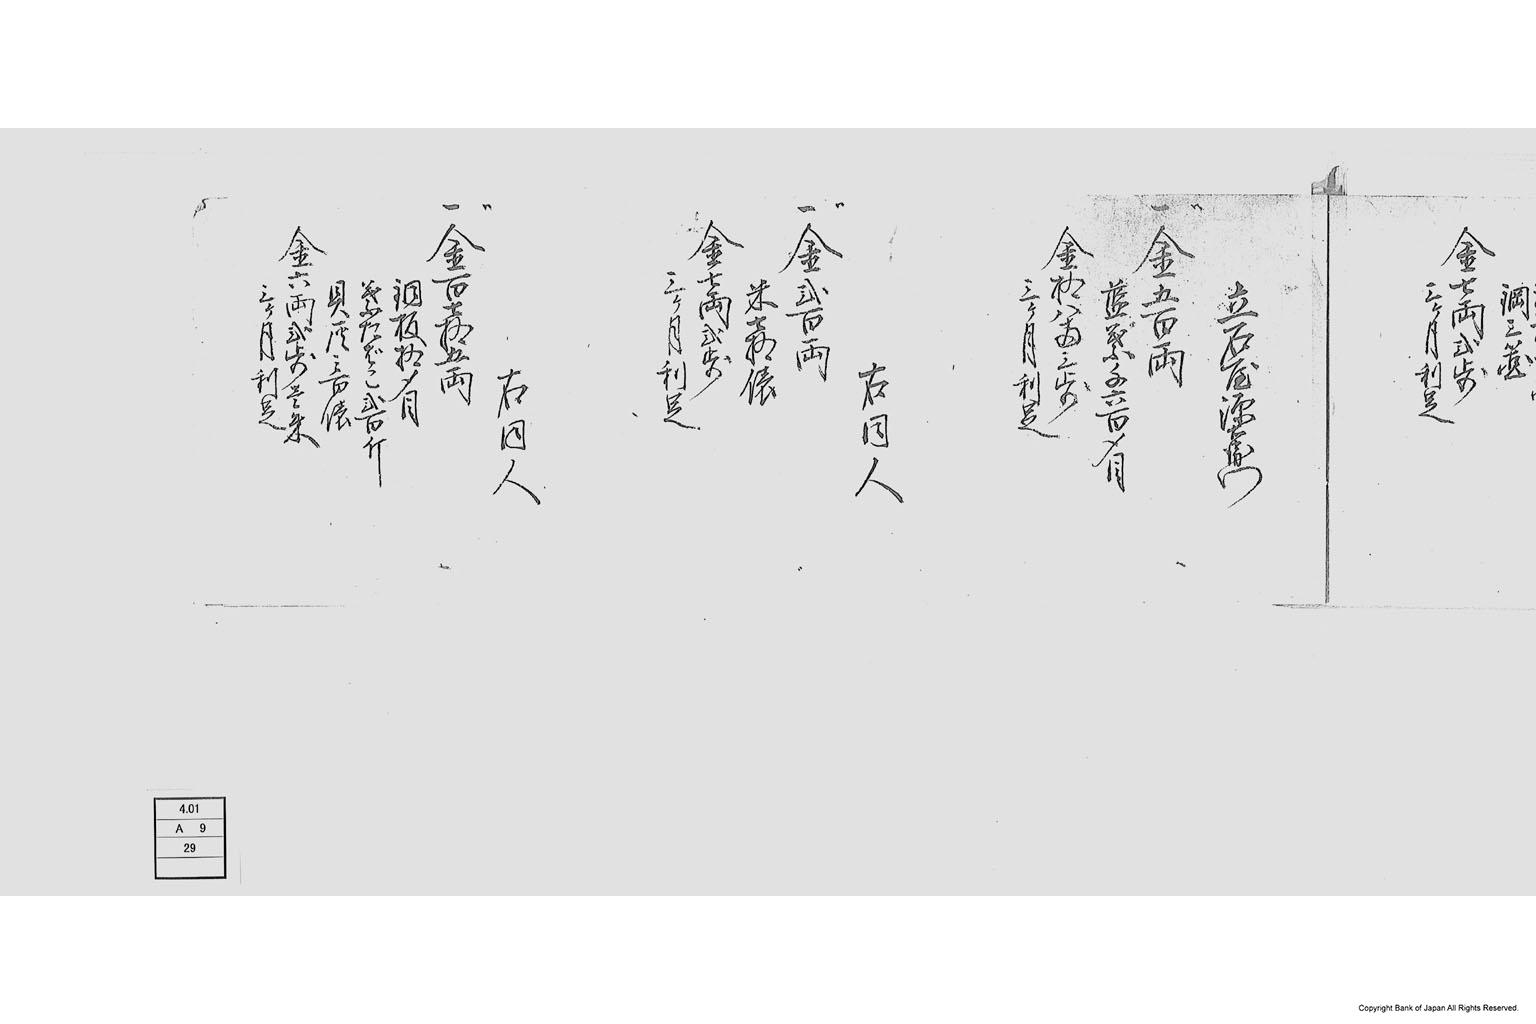 鋼三箇
金七両弐歩
三ヶ月利足
立石屋源右衛門
一金五百両
藍葉千六百〆目
金拾八両三歩
三ヶ月利足
右同人
一金弐百両
米七拾俵
金七両弐歩
三ヶ月利足
右同人
一金百七拾五両
銅板拾〆目
葉たばこ弐百斤
貝灰三百俵
金六両弐歩壱朱
三ヶ月利足
4.01
A 9
29
Copyright Bank of Japan All Rights Reserved.